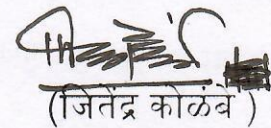 (जितेंद्र कोळंबे)